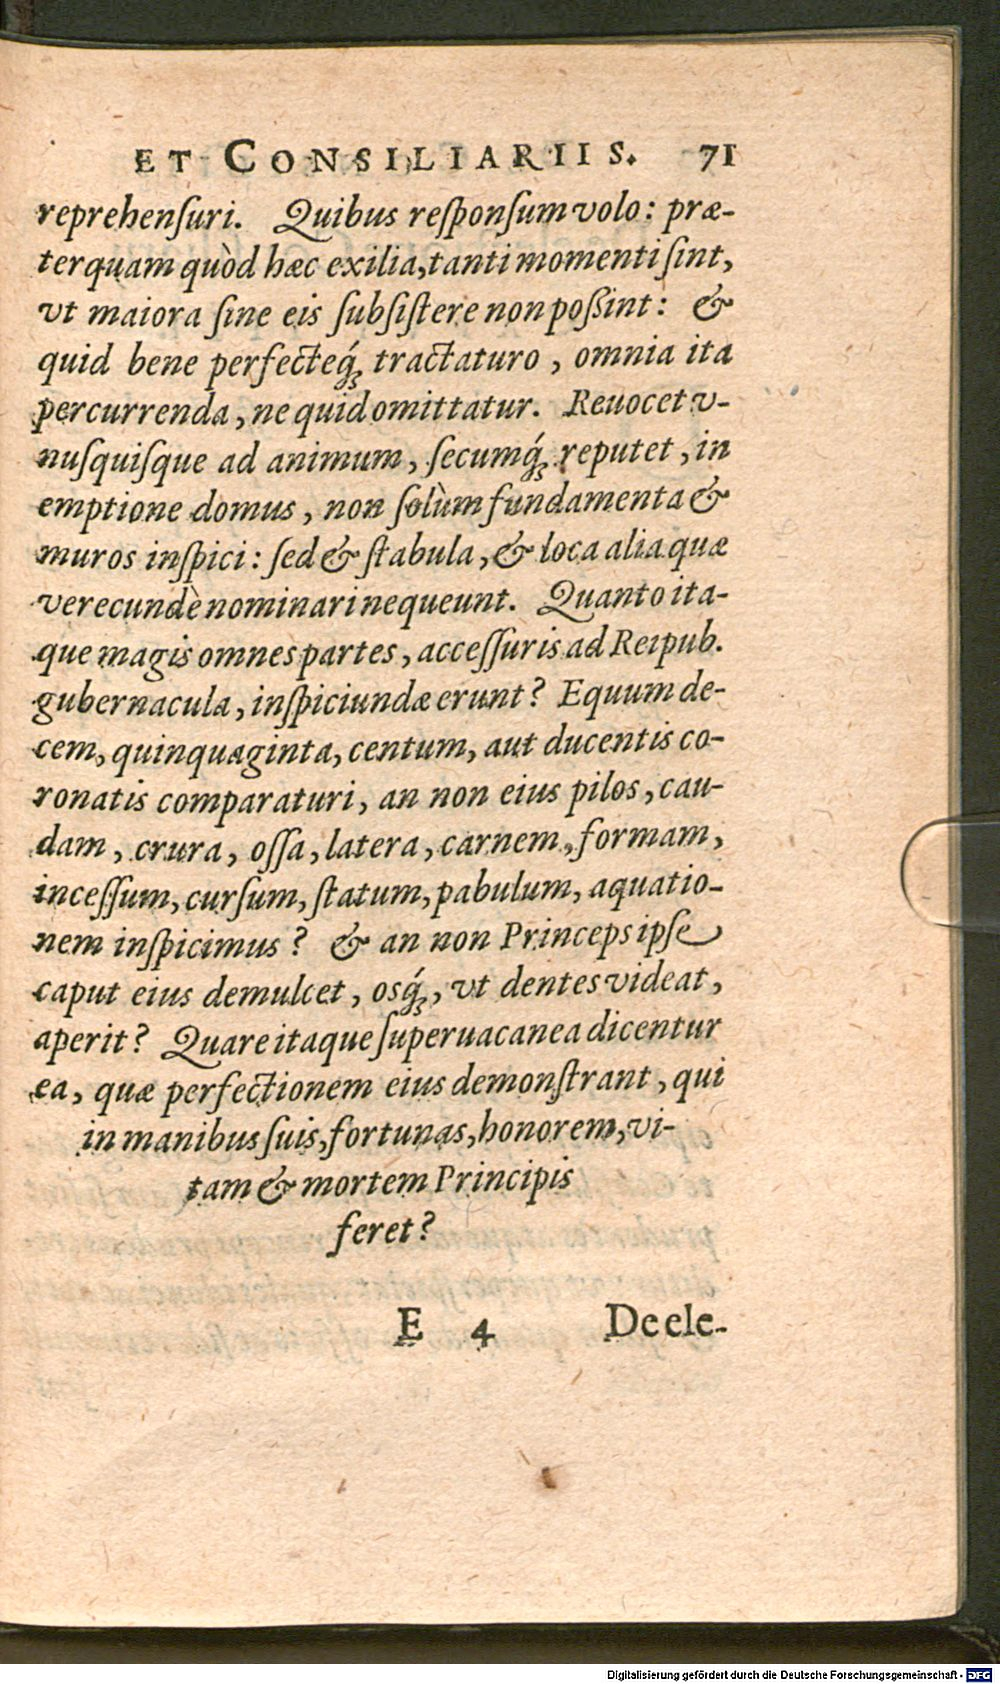 ET CONSILIARIIS. 71
reprehenſuri. Quibus reſponſum volo: præ-
terquam quòd hæc exilia, tanti momenti ſint,
vt maiora ſine eis ſubſiſtere non poßint: &
quid bene perfecteq́; tractaturo, omnia ita
percurrenda, ne quid omittatur. Reuocet v-
nuſquiſque ad animum, ſecumq́; reputet, in
emptione domus, non ſolùm fundamenta &
muros inſpici: ſed & ſtabula, & loca alia quæ
verecundè nominari nequeunt. Quanto ita-
que magis omnes partes, acceſſuris ad Reipub.
gubernacula, inſpiciundæ erunt? Equum de-
cem, quinquaginta, centum, aut ducentis co-
ronatis comparaturi, an non eius pilos, cau-
dam, crura, oſſa, latera, carnem, formam,
inceſſum, curſum, ſtatum, pabulum, aquatio-
nem inſpicimus? & an non Princeps ipſe
caput eius demulcet, osq́;, vt dentes videat,
aperit? Quare itaque ſuperuacanea dicentur
ea, quæ perfectionem eius demonſtrant, qui
in manibus ſuis, fortunas, honorem, vi-
tam & mortem Principis
feret?
E 4 De ele-
Digitalisierung gefördert durch die Deutsche Forschungsgemeinschaft - DFG